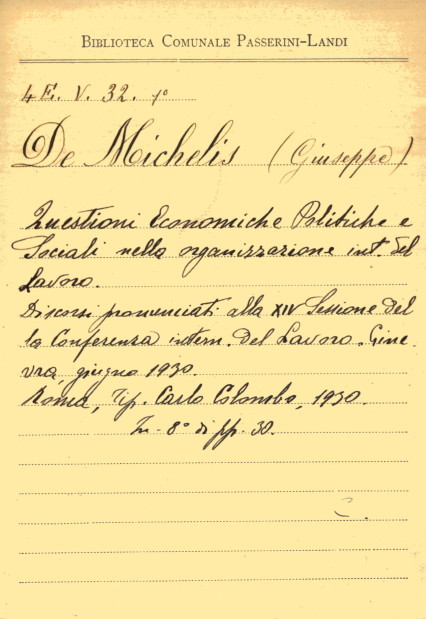 BIBLIOTECA COMUNALE PASSERINI-LANDI
4 E. V. 32. 1º
De Michelis (Giuseppe)
Questioni Economiche Politiche e
Sociali nella organizzazione int. del
Lavoro.
Discorsi pronunciati alla XIV Sessione del
la Conferenza intern. del Lavoro. Gine
vra, giugno 1930.
Roma, Tip. Carlo Colombo, 1930.
In-8º di pp. 30.
C.